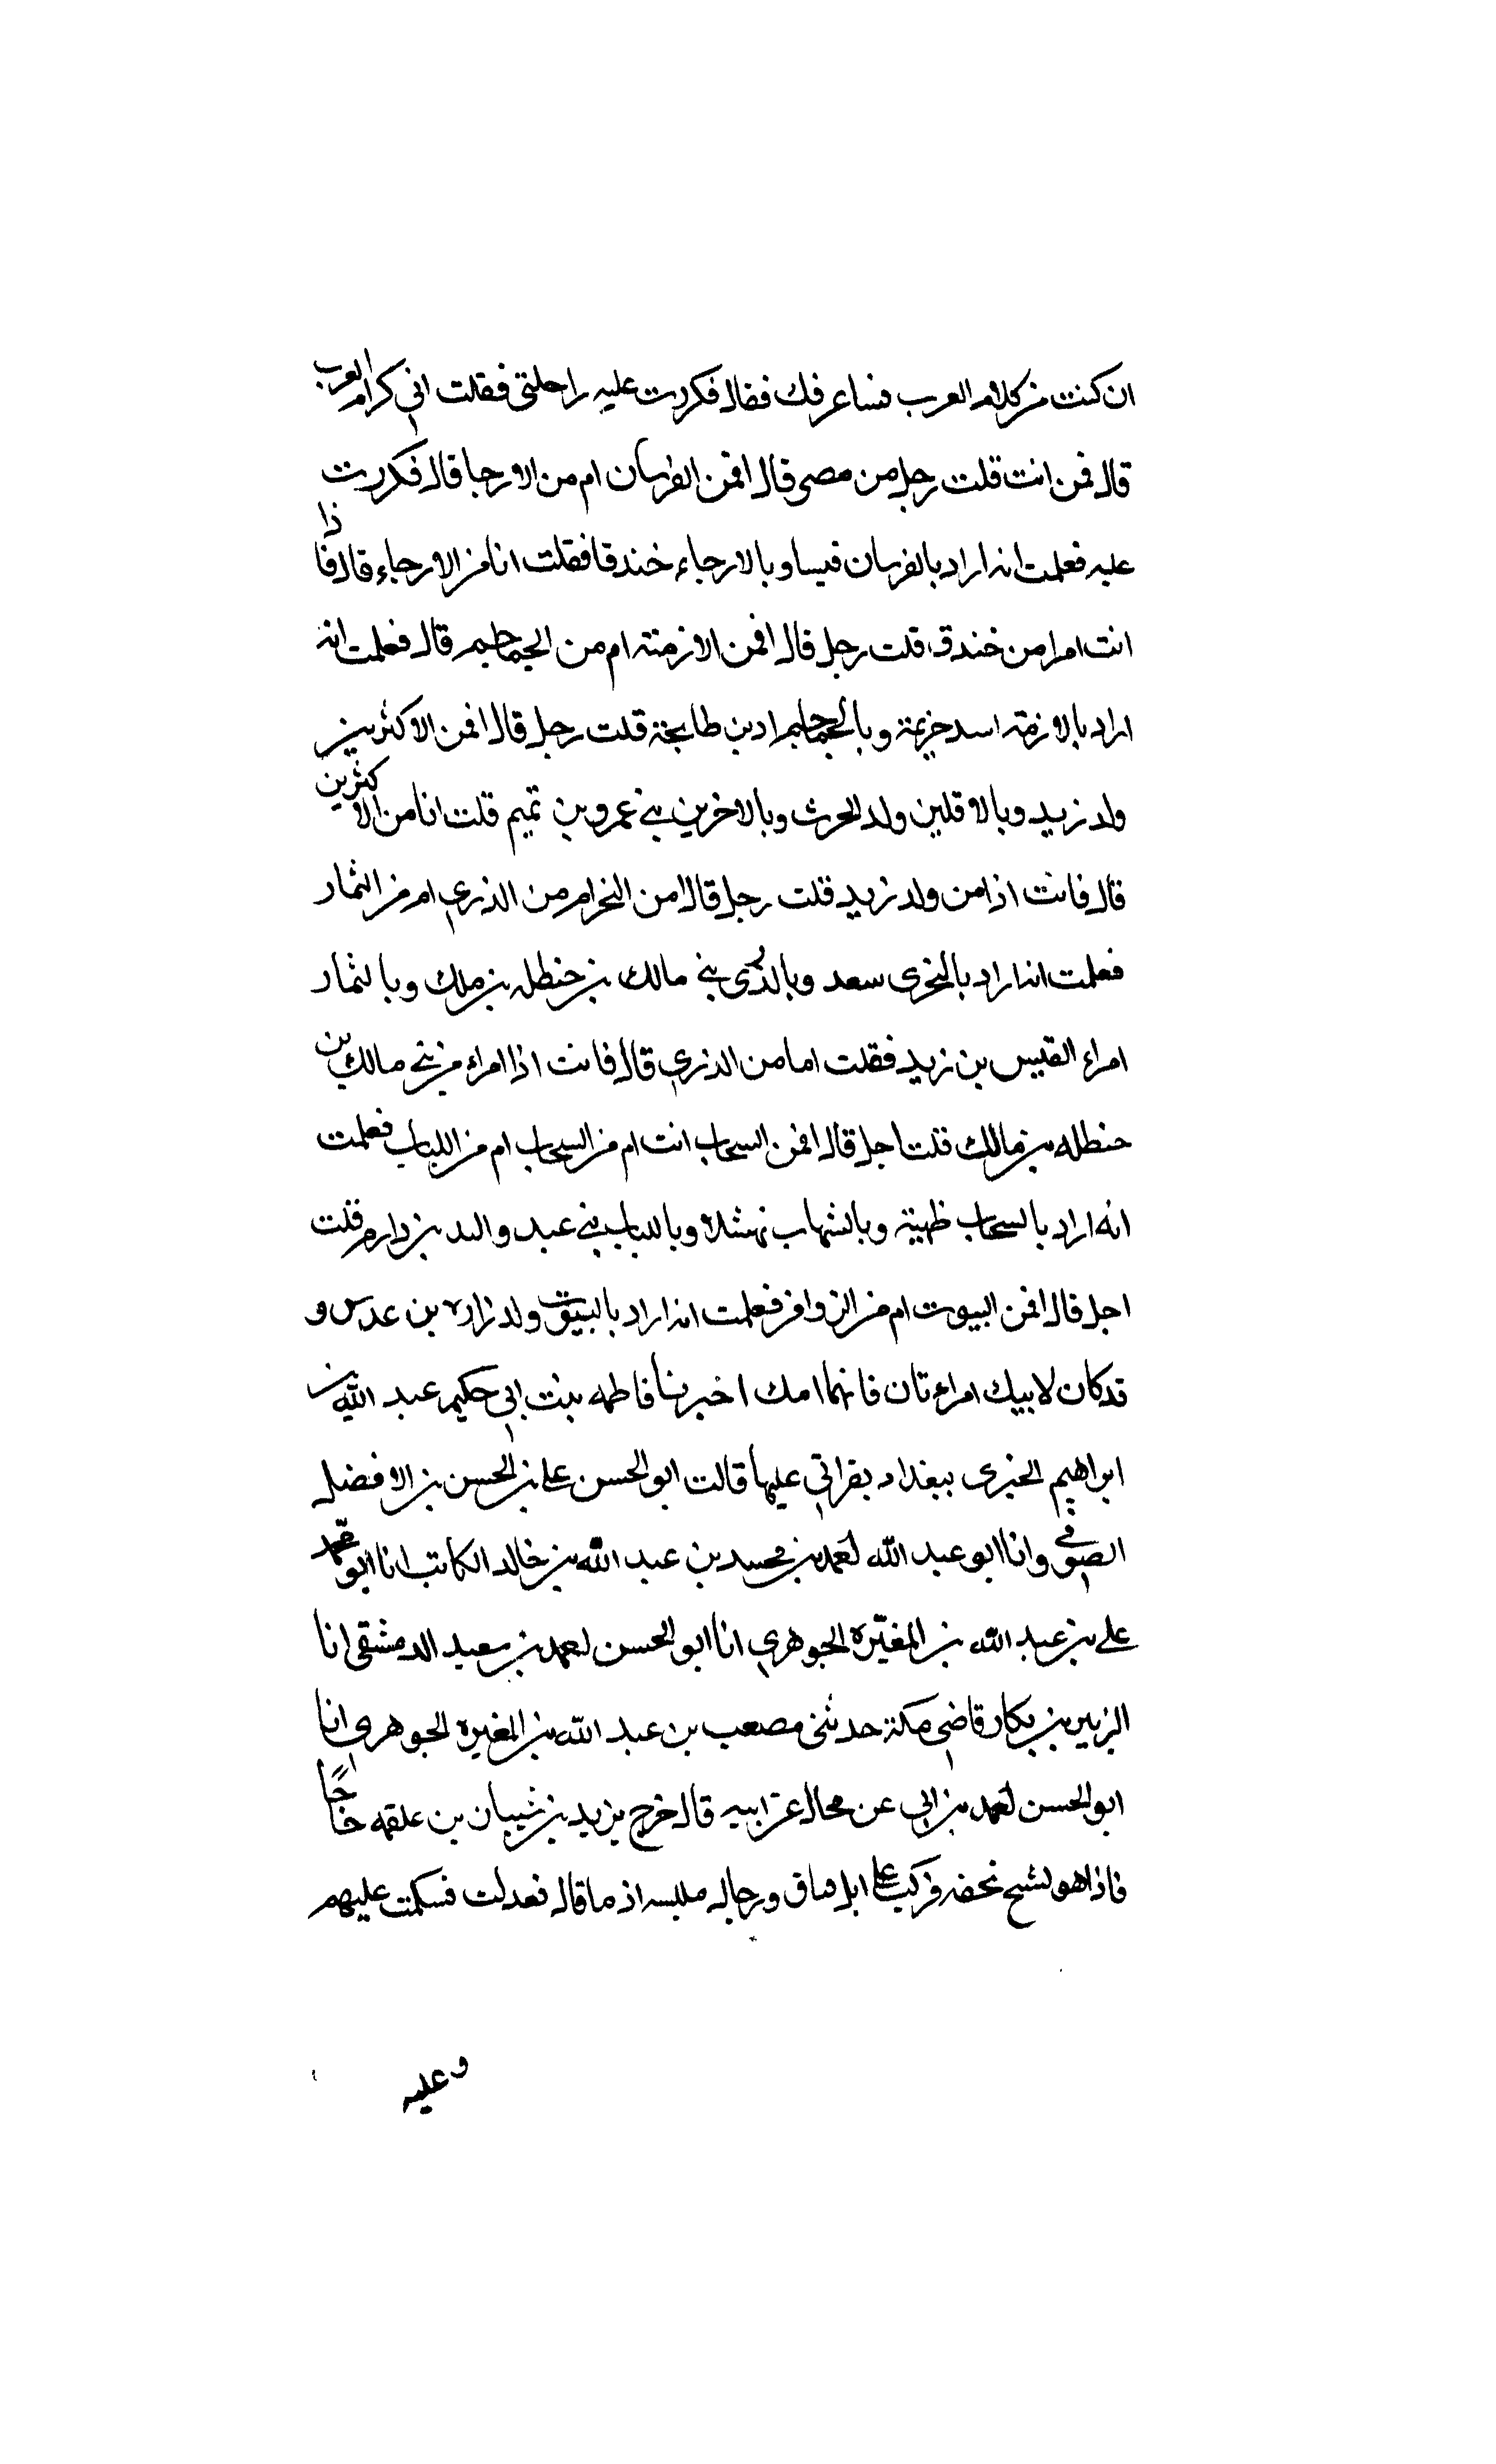 ان كنت من كلام العرب فساعرفك فقال فكررت عليه راحلتي فقلت اني كرام العرب
قال فمن انت قلت رجل من مضر قال افمن الفرسان ام من الارحا قال فكررت
عليه فعلمت انه اراد بالفرسان قيسا وبالارجاء خندقا فقلت انا من الارجاء قال فاذا
انت امرا من خندق قلت رجل قال افمن الازمة ام من الجماجم قال فعلمت انه
اراد بالازمة اسد خزيمة وبالجماجم اد بن طابخة قلت رجل قال افمن الاكثرين
ولد زيد وبالاقلين ولد الحرث وبالاخرين بني عمرو بن تميم قلت انا من الاكثرين
قال فانت اذا من ولد زيد قلت رجل قال امن ام من الذري ام من الثمار
فعلمت انه اراد سعد وبالذرى بني مالك بن حنظله بن ملك وبالثمار
امراء القيس بن زيد فقلت اما من الذري قال فانت اذا امراء من بني مالك بن
حنظله بن مالك قلت اجل قال افمن السحاب انت ام من السحاب ام من اللباب فعلمت
انه اراد بالسحاب طهية وبالشهاب نهشلا وباللباب بني عبد والله بن دارم قلت
اجل قال افمن البيوت ام من الزوافر فعلمت انه اراد بالبيوت ولد زراره بن عدس و
قد كان لابيك امراءتان فانهما امك اخبرتنا فاطمه بنت ابي حكيم عبد الله بن
ابراهيم الخبرى ببغداد بقراتي عليها قالت ابو الحسن علي بن الحسن بن الافضل
الصوفي وانا ابو عبد الله احمد بن محمد بن عبد الله بن خالد الكاتب انا ابو محمد
علي بن عبد الله بن المغيره الجوهري انا ابو الحسن احمد بن سعيد الدمشقي انا
الزبير بن بكار قاضي مكة حدثنى مصعب بن عبد الله بن المغيره الجوهري انا
ابو الحسن احمد بن ابي عن محال عن ابيه قال خرج يزيد بن شيبان بن علقمه حاجا
فاذا هو بشيخ في ركب علي ابل ورحال قال فعدلت فسلمت عليهم
وعليه